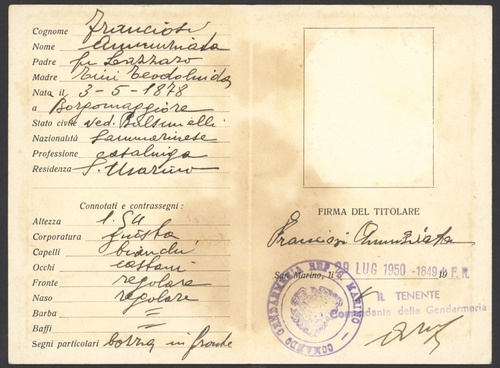 Cognome Franciosi
Nome Annunziata
Padre fu Lazzaro
Madre Teodolinda
Nata il 3-5-1878
a Borgomaggiore
Stato civile ved. Balsimelli
Nazionalità Sammarinese
Professione casalinga
Residenza S. Marino
Connotati e contrassegni:
Altezza 1.54
Corporatura giusta
Capelli bianchi
Occhi castani
Fronte regolare
Naso regolare
Barba =
Baffi =
Segni particolari in fronte
FIRMA DEL TITOLARE
Franciosi Annunziata
San Marino, lì 29 LUG 1950 -1649 d. F. R.
IL TENENTE
Comandante della Gendarmeria
COMANDO GENDARMERIA REP. S. MARINO